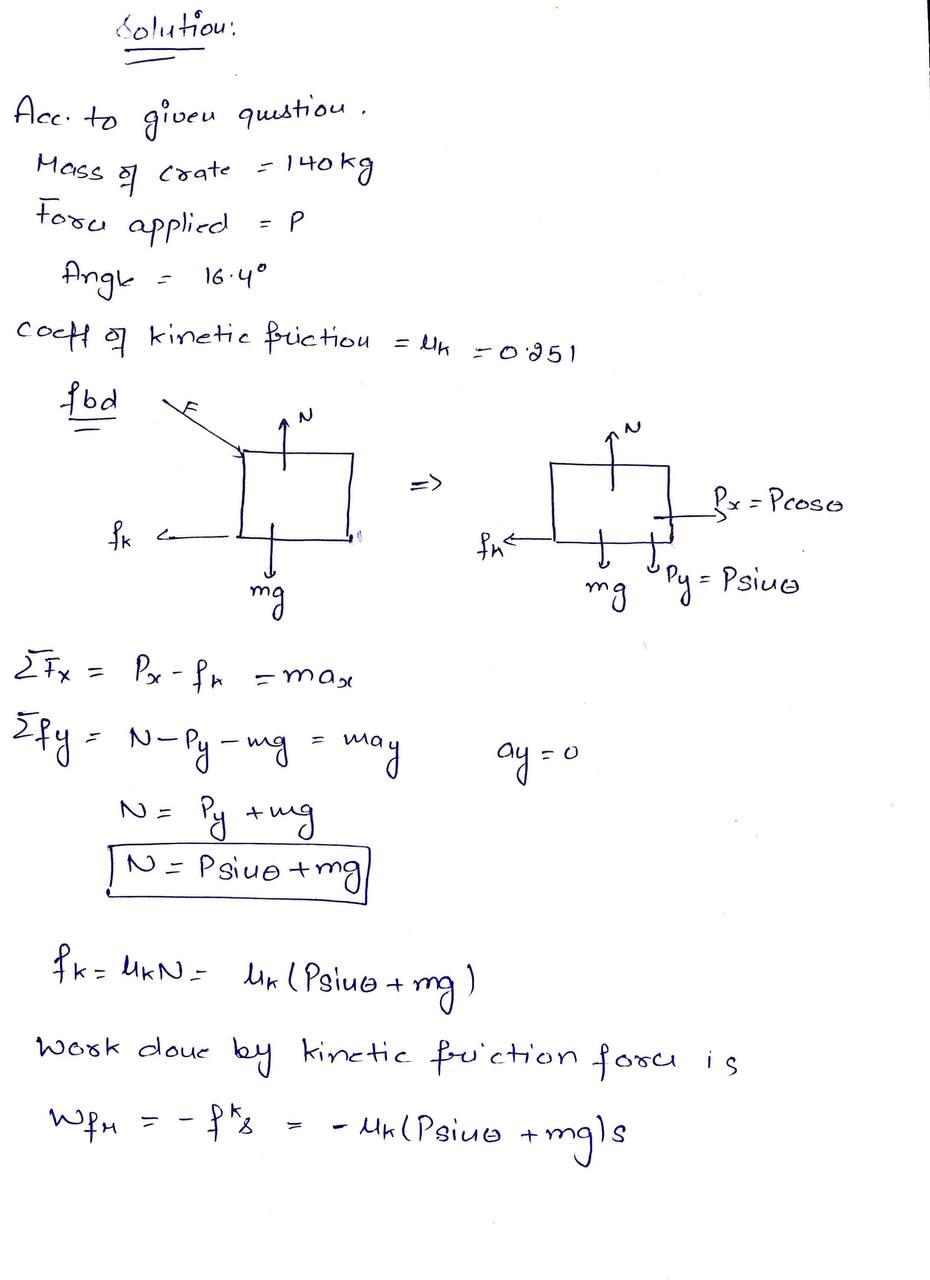 Solution:
Acc. to given question.
Mass of crate = 140kg
Force applied = P
Angle = 16.4°
Coeff of kinetic friction = μk = 0.251
fbd
F N
=>
fk
mg
N
Px = Pcosθ
fk
mg Py = Psinθ
ΣFx = Px - fk = max
Σfy = N - Py - mg = may ay = 0
N = Py + mg
N = Psinθ + mg
fk = μkN = μk(Psinθ + mg)
Work done by kinetic friction force is
Wfk = - fks = - μk(Psinθ + mg)s